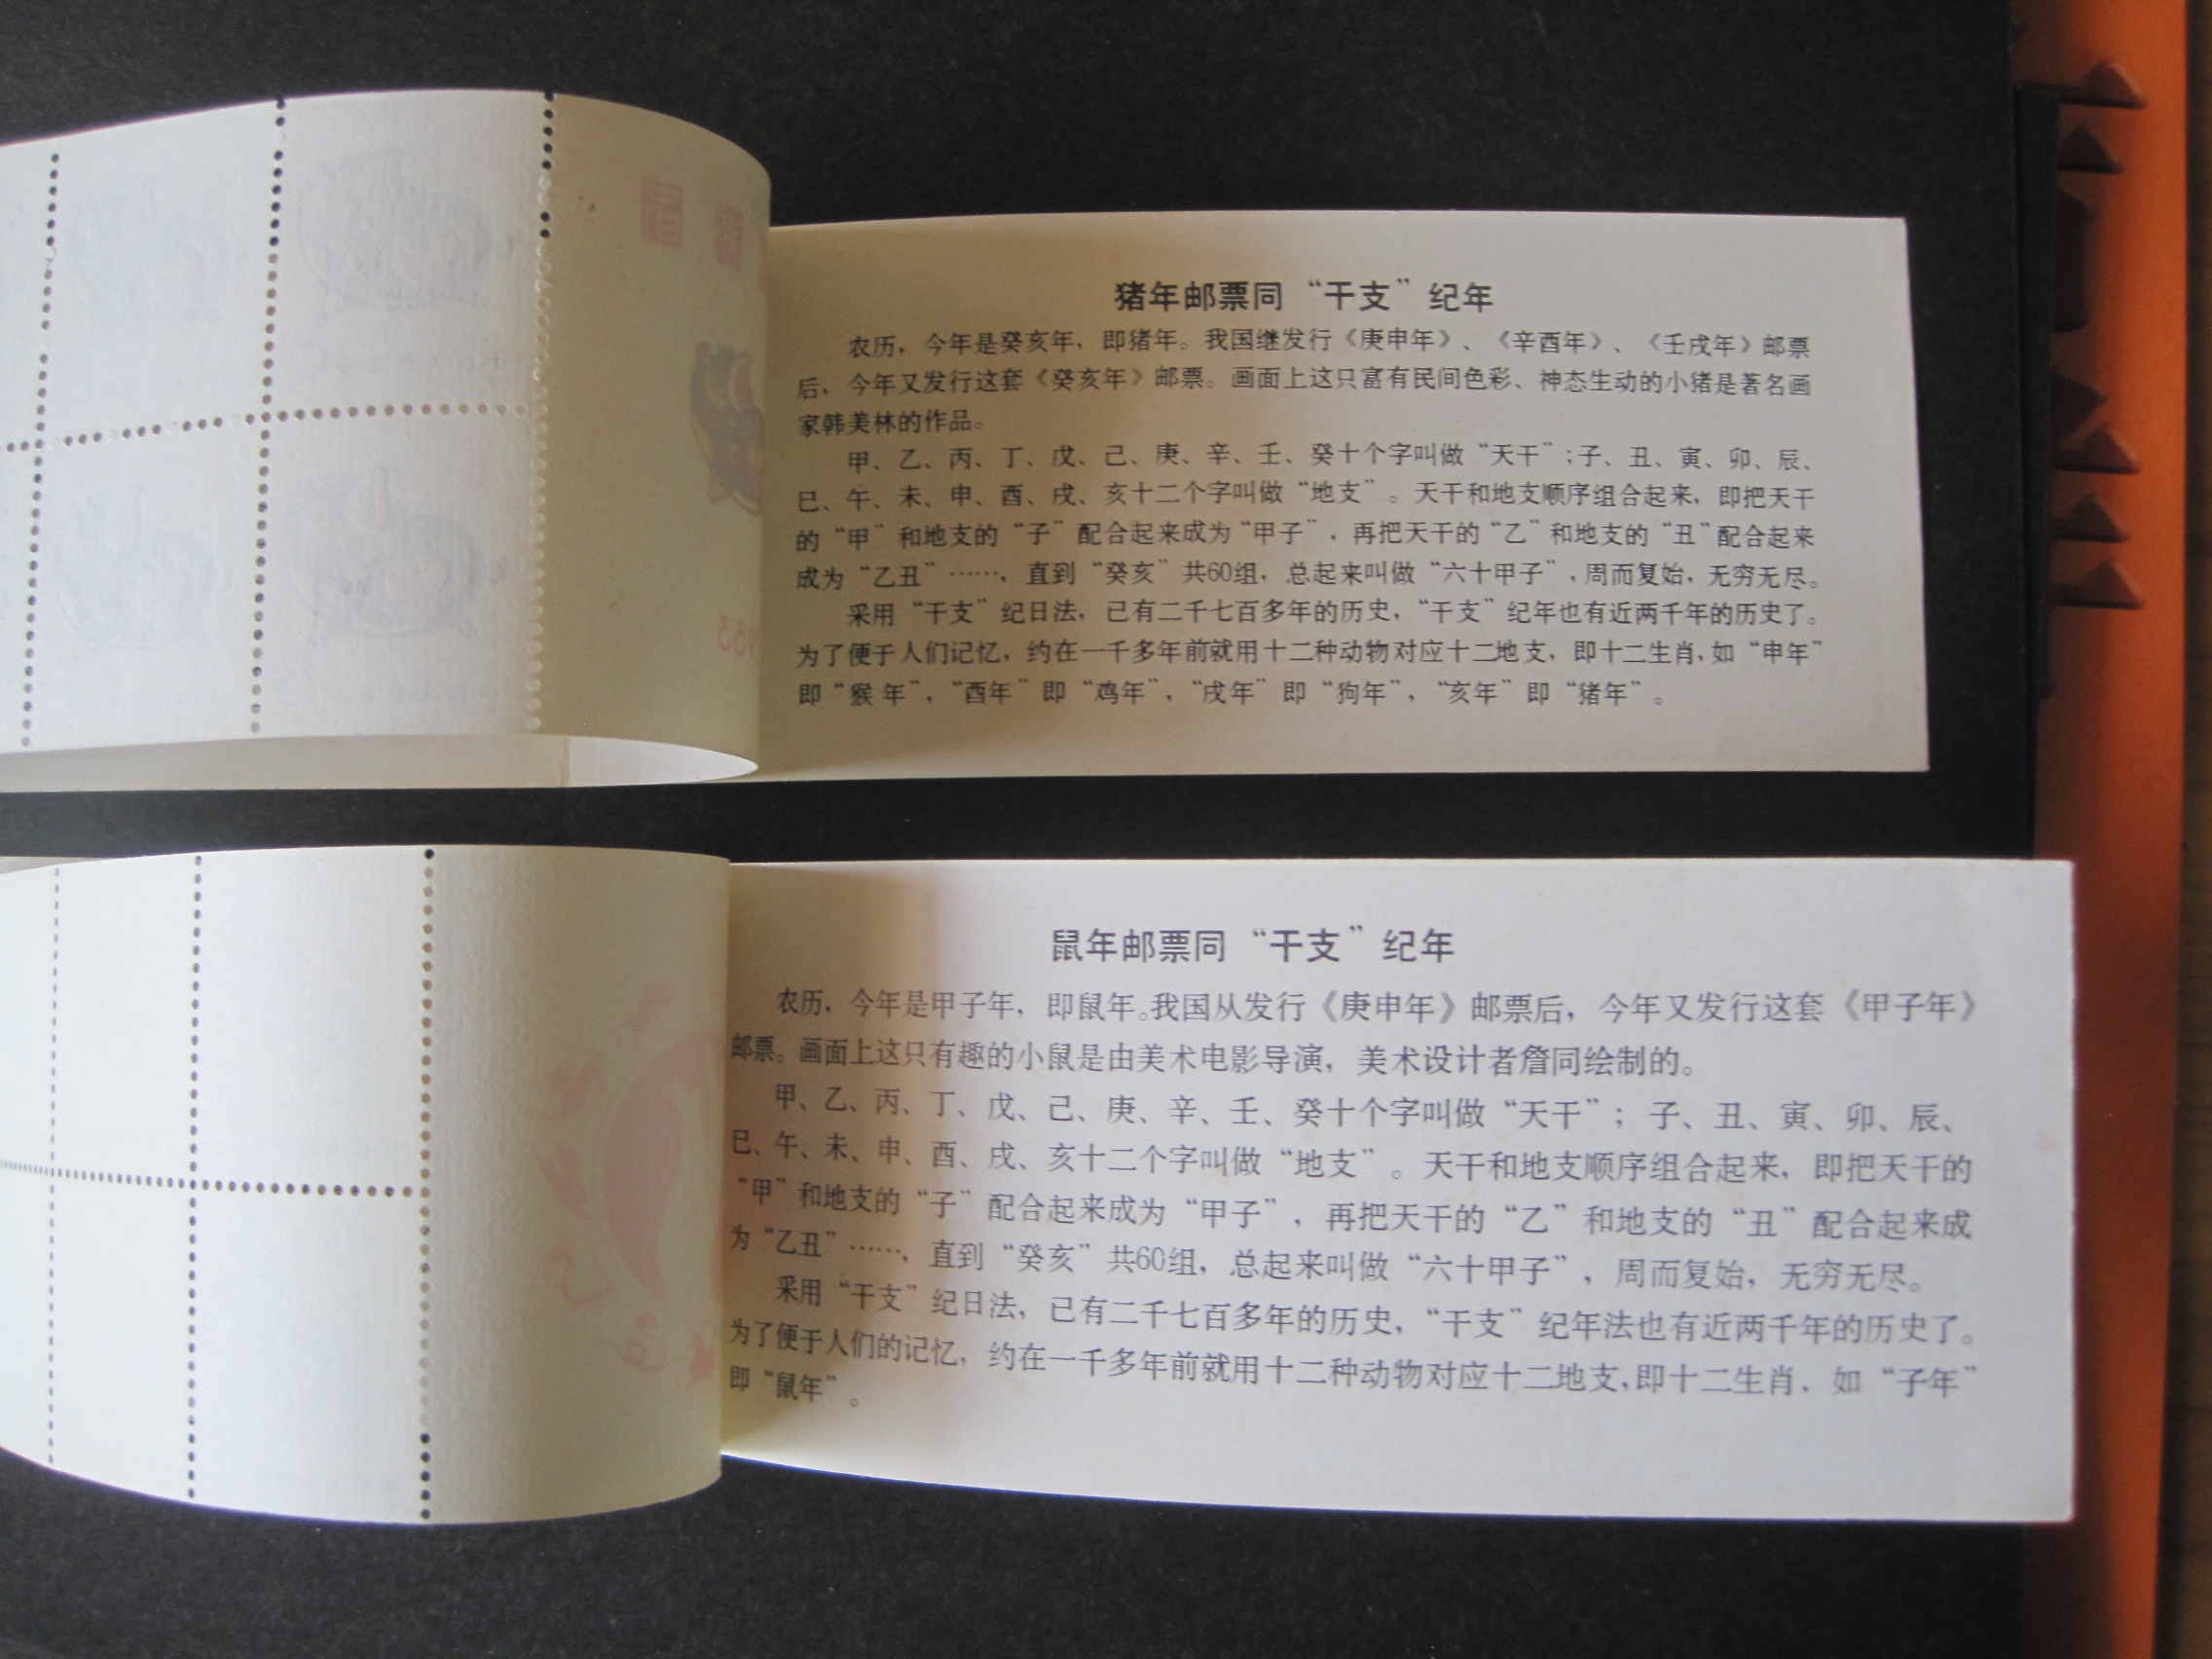 猪年邮票同“干支”纪年
农历，今年是癸亥年，即猪年。我国继发行《庚申年》、《辛酉年》、《壬戌年》邮票
后，今年又发行这套《癸亥年》邮票。画面上这只富有民间色彩、神态生动的小猪是著名画
家韩美林的作品。
甲、乙、丙、丁、戊、己、庚、辛、壬、癸十个字叫做“天干”；子、丑、寅、卯、辰、
巳、午、未、申、酉、戌、亥十二个字叫做“地支”。天干和地支顺序组合起来，即把天干
的“甲”和地支的“子”配合起来成为“甲子”，再把天干的“乙”和地支的“丑”配合起来
成为“乙丑”……，直到“癸亥”共60组，总起来叫做“六十甲子”，周而复始，无穷无尽。
采用“干支”纪日法，已有二千七百多年的历史，“干支”纪年也有近两千年的历史了。
为了便于人们记忆，约在一千多年前就用十二种动物对应十二地支，即十二生肖，如“申年”
即“猴年”，“酉年”即“鸡年”，“戌年”即“狗年”，“亥年”即“猪年”。
鼠年邮票同“干支”纪年
农历，今年是甲子年，即鼠年。我国从发行《庚申年》邮票后，今年又发行这套《甲子年》
邮票。画面上这只有趣的小鼠是由美术电影导演，美术设计者詹同绘制的。
甲、乙、丙、丁、戊、己、庚、辛、壬、癸十个字叫做“天干”；子、丑、寅、卯、辰、
巳、午、未、申、酉、戌、亥十二个字叫做“地支”。天干和地支顺序组合起来，即把天干的
“甲”和地支的“子”配合起来成为“甲子”，再把天干的“乙”和地支的“丑”配合起来成
为“乙丑”……，直到“癸亥”共60组，总起来叫做“六十甲子”，周而复始，无穷无尽。
采用“干支”纪日法，已有二千七百多年的历史，“干支”纪年法也有近两千年的历史了。
为了便于人们的记忆，约在一千多年前就用十二种动物对应十二地支，即十二生肖，如“子年”
即“鼠年”。